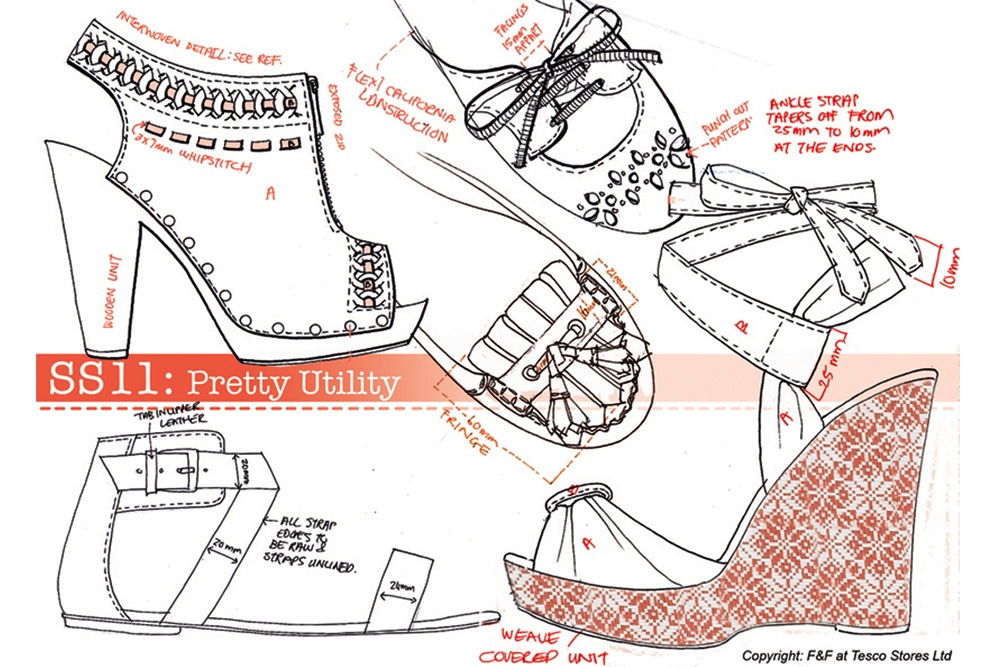 INTERWOVEN DETAIL: SEE REF.
EXPOSED ZIP
8X7mm WHIPSTITCH
A
WOODEN UNIT
FLEXI CALIFORNIA
CONSTRUCTION
FACINGS
15mm
APPART
PUNCH OUT
PATTERN.
ANKLE STRAP
TAPERS OFF FROM
25mm TO 10mm
AT THE ENDS.
10mm
B
25mm
A
21mm
60mm
FRINGE
SS11: Pretty Utility
TAB IN UPPER
LEATHER
20mm
20mm
ALL STRAP
EDGES TO
BE RAW &
STRAPS UNLINED.
24mm
B
A
WEAVE
COVERED UNIT
Copyright: F&F at Tesco Stores Ltd